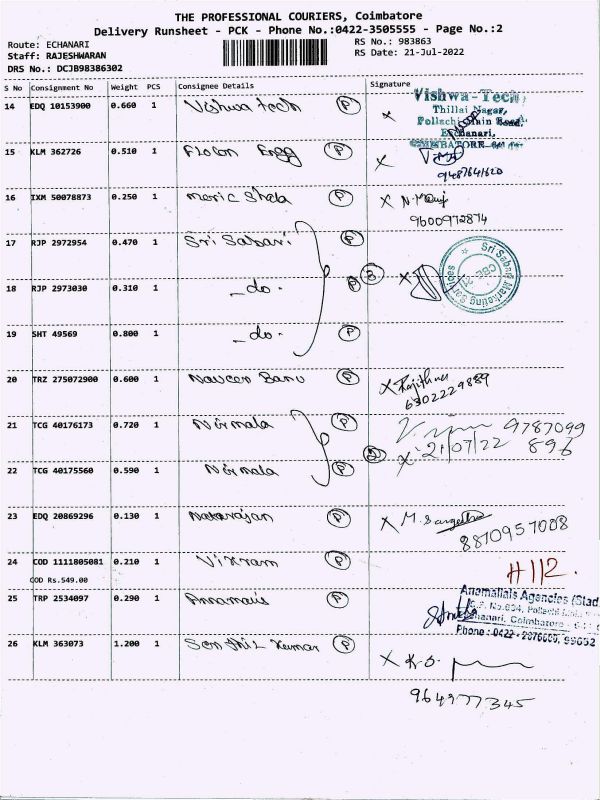 THE PROFESSIONAL COURIERS, Coimbatore
Delivery Runsheet - PCK - Phone No.:0422-3505555 - Page No.:2
Route: ECHANARI
RS No.: 983863
Staff: RAJESHWARAN
RS Date: 21-Jul-2022
DRS No.: DCJB98386302
S No Consignment No Weight PCS Consignee Details Signature
14 EDQ 10153900 0.660 1 Vishwa tech P X
Vishwa-Tech
Thillai Nagar,
Pollachi Main Road,
Echanari,
COIMBATORE
15 KLM 362726 0.510 1 Engg P X
9487641620
16 IXM 50078873 0.250 1 P X
9600972874
17 RJP 2972954 0.470 1 Sri Sabari P
18 RJP 2973030 0.310 1 -do- P 3 X
Sri Sabari Marketing Services
CBE-21
19 SHT 49569 0.800 1 -do- P
20 TRZ 275072900 0.600 1 Naveen Banu P X
6302229889
21 TCG 40176173 0.720 1 Nirmala P
9787099
896
2 X 21/07/22
22 TCG 40175560 0.590 1 Nirmala P
23 EDQ 20869296 0.130 1 Natarajan P X M. Sangeetha
8810957008
24 COD 1111805081 0.210 1 Vikram P
COD Rs.549.00
#112.
25 TRP 2534097 0.290 1 P
Anamallais Agencies (Stad
S.F. No.634, Pollachi Main
Echanari, Coimbatore - 641
Phone : 0422 - 2676600, 99652
26 KLM 363073 1.200 1 Senthil Kumar P X
964977345